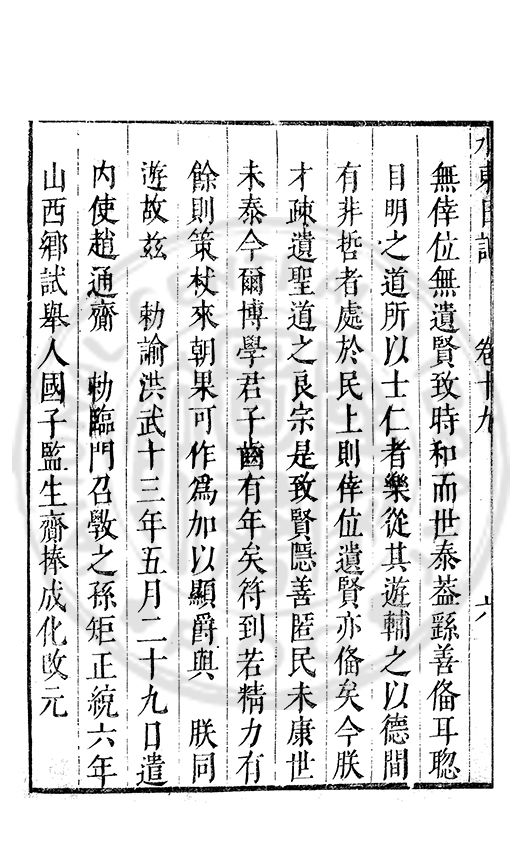 水東日記 卷十九 六
無倖位無遺賢致時和而世泰葢繇善俻耳聦
目明之道所以士仁者樂從其遊輔之以德間
有非哲者處於民上則倖位遺賢亦俻矣今朕
才疎遺聖道之良宗是致賢隱善匿民未康世
未泰今爾博學君子齒有年矣符到若精力有
餘則策杖來朝果可作爲加以顯爵與 朕同
遊故玆 勅諭洪武十三年五月二十九日遣
內使趙通齎 勅臨門召斅之孫矩正統六年
山西鄉試舉人國子監生齎捧成化改元